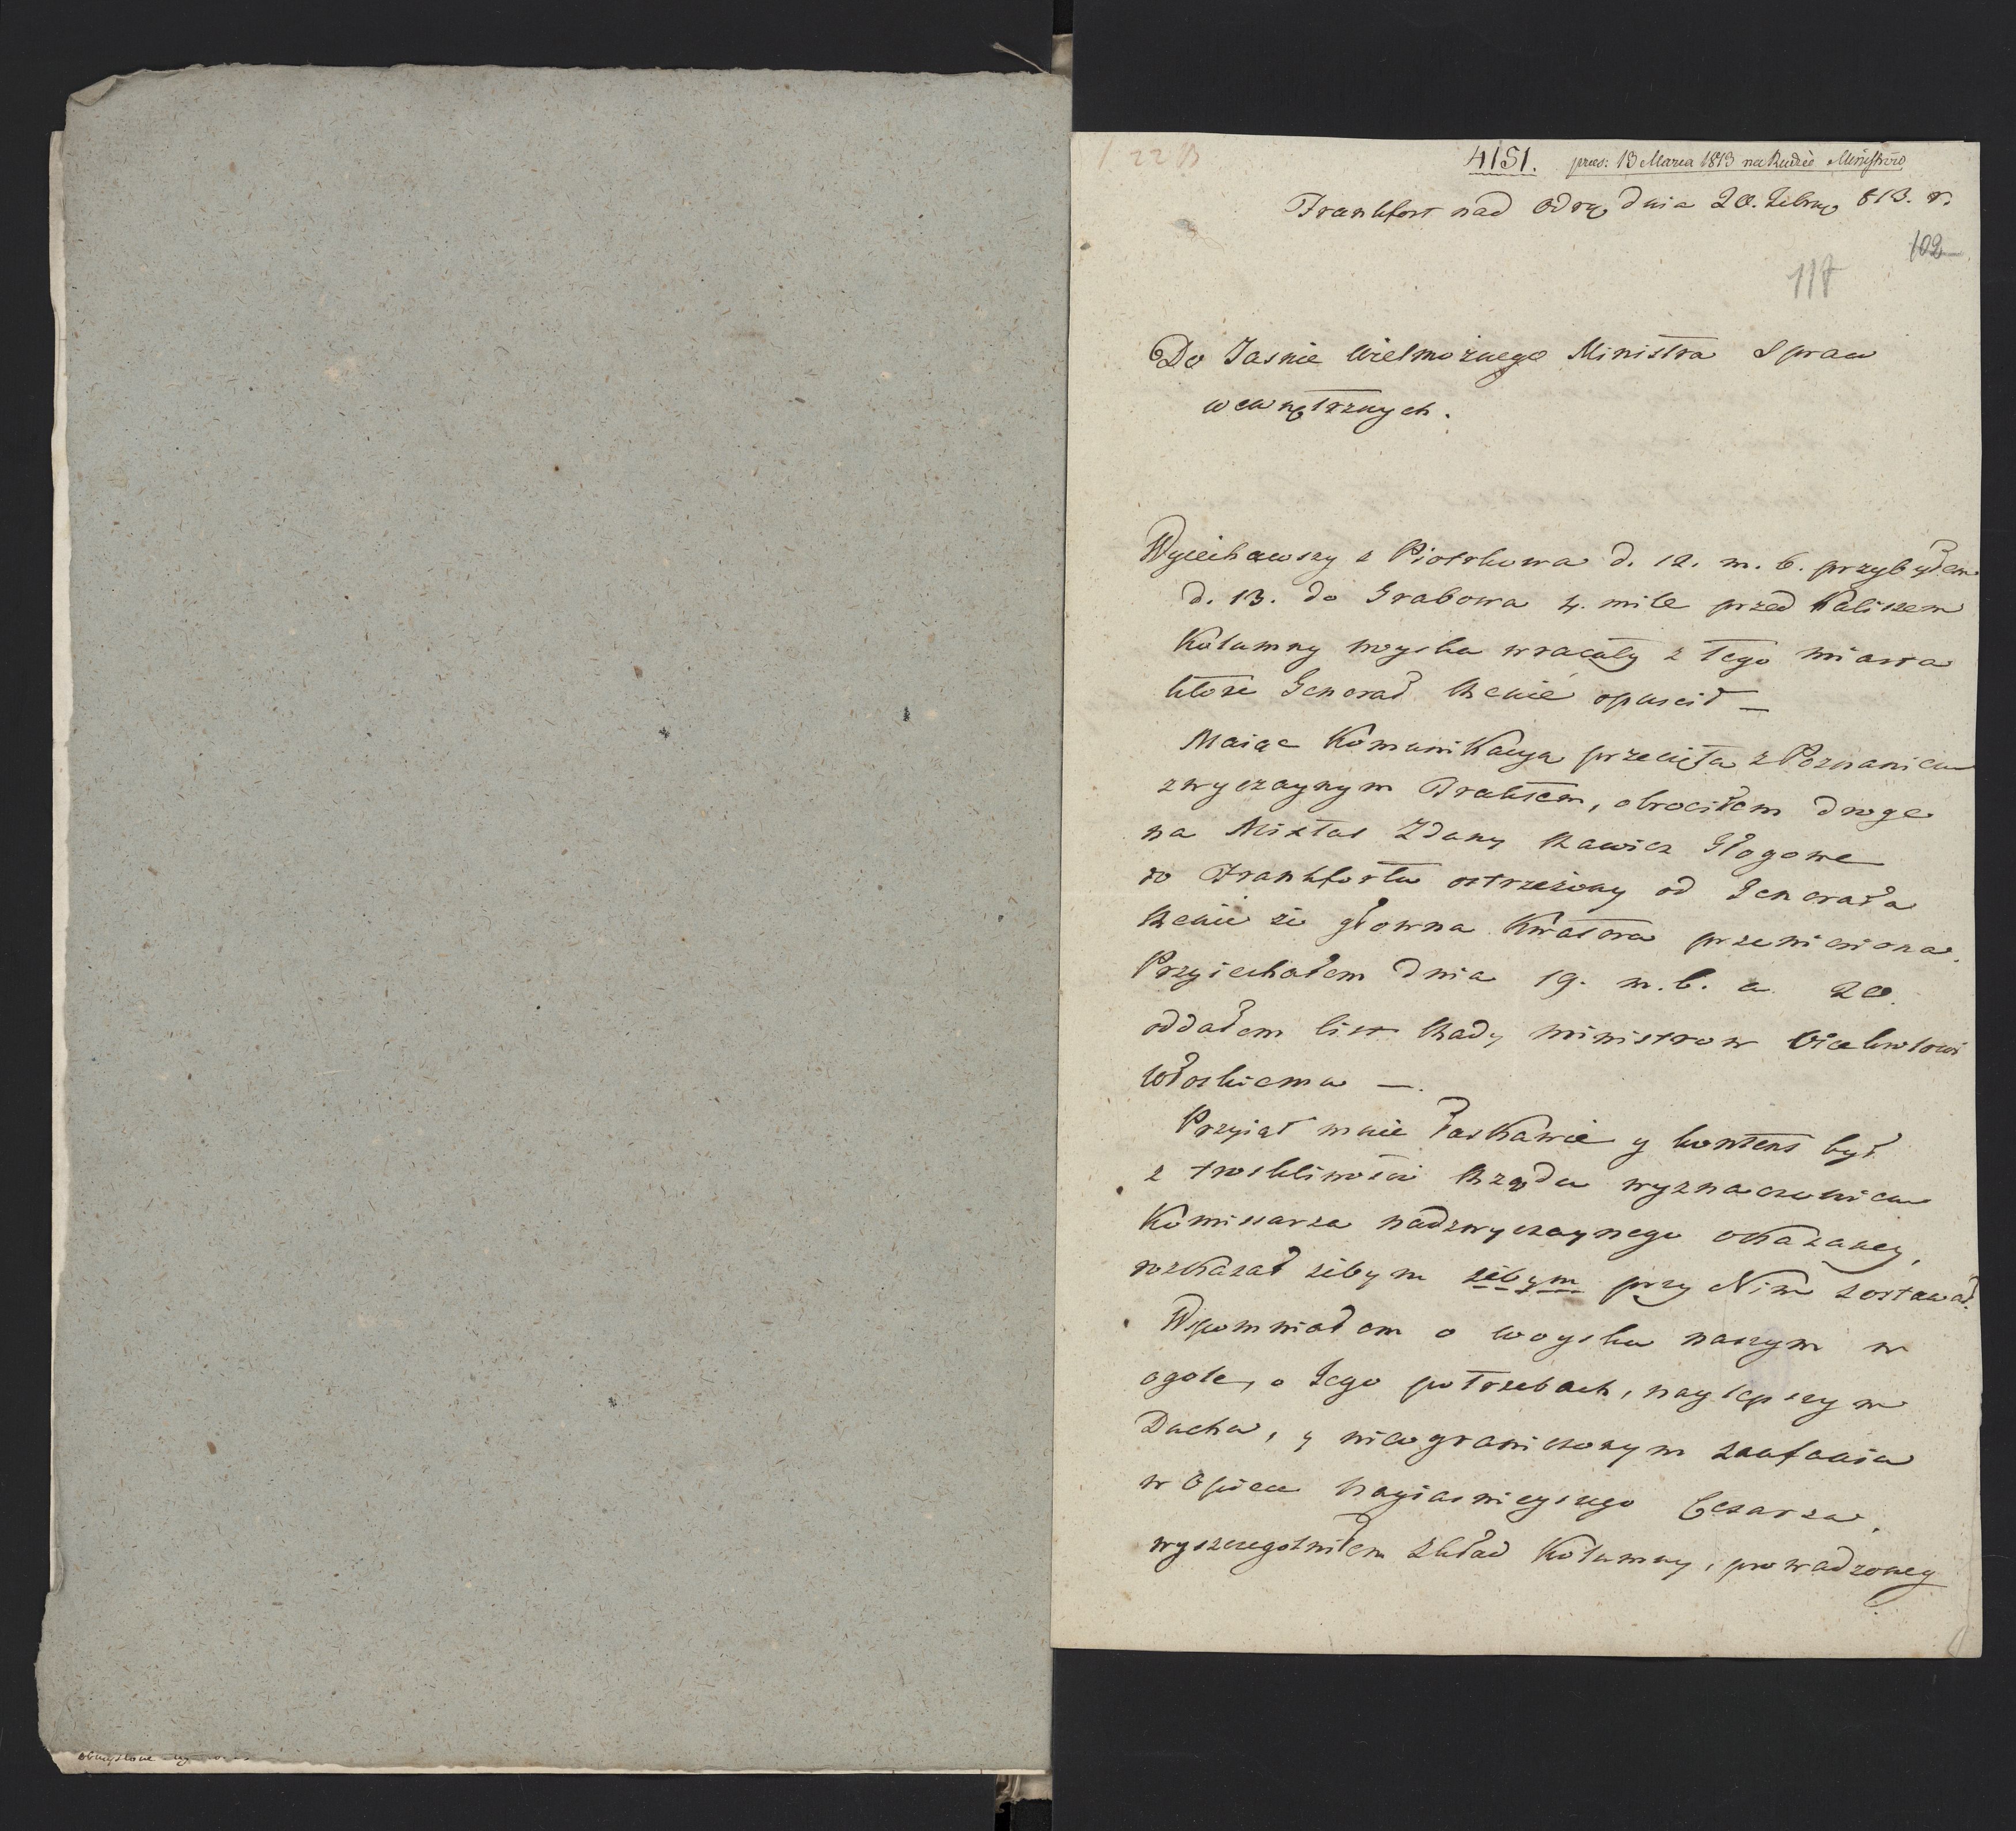 4151. prez: 13 Marca 1813 na Radzie Ministrów
Frankfort nad Odrą dnia 20. Lebrug 813. r.
102
118
Do Jasnie Wielmożnego Ministra Spraw
wewnętrznych.
Wyiechawszy z Piotrkowa d. 12. m. b. przybyłem
d. 13. do Grabowa 4. mile przed Kaliszem
Kolumny woyska wracały z tego miasta
ktore Generał Renié opuscił —
Maiąc Komunikacyą przeciętą z Poznaniem
zwyczaynym Traktem, obrociłem drogę
na Mixtat Zduny Rawicz Głogowę
do Frankfortu ostrzeżony od Generała
Renié że głowna Kwatera przeniesiona.
Przyiechałem dnia 19. m. b. a 20.
oddałem list Rady Ministrow Vicekrolowi
Włoskiemu —.
Przyiął mnie łaskawie y kontent był
z troskliwości Rządu wyznaczeniem
Komissarza nadzwyczaynego okazaney,
rozkazał żebym żebym przy Nim zostawał.
Wspomniałem o woysku naszym w
ogole, o Jego potrzebach, naylepszym
Duchu, y nieograniczonym zaufaniu
w Opiece Nayiasnieyszego Cesarza,
wyszczegolniłem skład Kolumny, prowadzoney
obmyslone